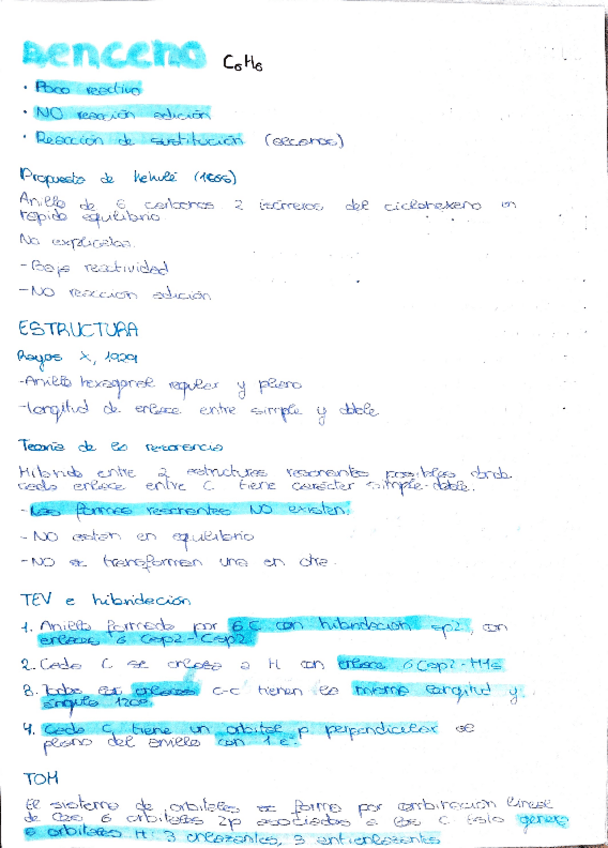 Benceno C6H6
· Poco reactivo
· NO reacción adición
· Reacción de sustitución
Propuesto de Kekulé
Anillo de 6 carbonos 2 isómeros del ciclohexeno en
rápido equilibrio
No explicaba.
- Baja reactividad
- NO reacción adición
ESTRUCTURA
Rayos X, 1929
- Anillo hexagonal regular y plano
- longitud de enlace entre simple y doble
Teoría de la resonancia
Híbrido entre 2 estructuras resonantes posibles donde
cada enlace entre C tiene carácter simple-doble.
- Las formas resonantes NO existen.
- NO están en equilibrio
- NO se transforman una en otra.
TEV e hibridación
1. Anillo formado por 6 C con hibridación sp2, con
enlaces σ Csp2-Csp2
2. Cada C se enlaza a H con enlace σ Csp2-H1s
3. Todos los enlaces C-C tienen la misma longitud y
ángulo 120º
4. Cada C tiene un orbital p perpendicular al
plano del anillo con 1 e-.
TOM
El sistema de orbitales se forma por combinación lineal
de los 6 orbitales 2p asociados a los C esto genera
6 orbitales π: 3 enlazantes, 3 antienlazantes